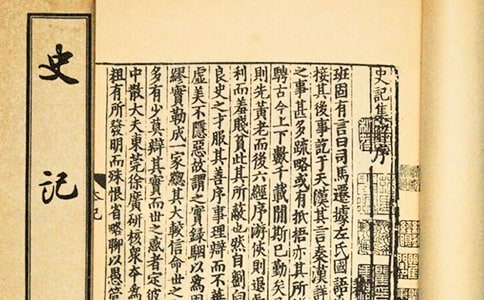 史記集解序
班固有言曰司馬遷據左氏國語
接其後事訖于天漢其言秦漢詳
之事甚多疏略或有抵梧亦其所
騁古今上下數千載閒斯已勤矣
則先黃老而後六經序游俠則退
利而羞賤貧此其所蔽也然自劉向
良史之才服其善序事理辯而不華
虛美不隱惡故謂之實録駰以爲固
繆實勒成一家緫其大較信命世之
多有少眞辯其實而世之惑者定彼
中散大夫東莞徐廣研核衆本爲
粗有所發明而殊恨省略聊以愚管
史記